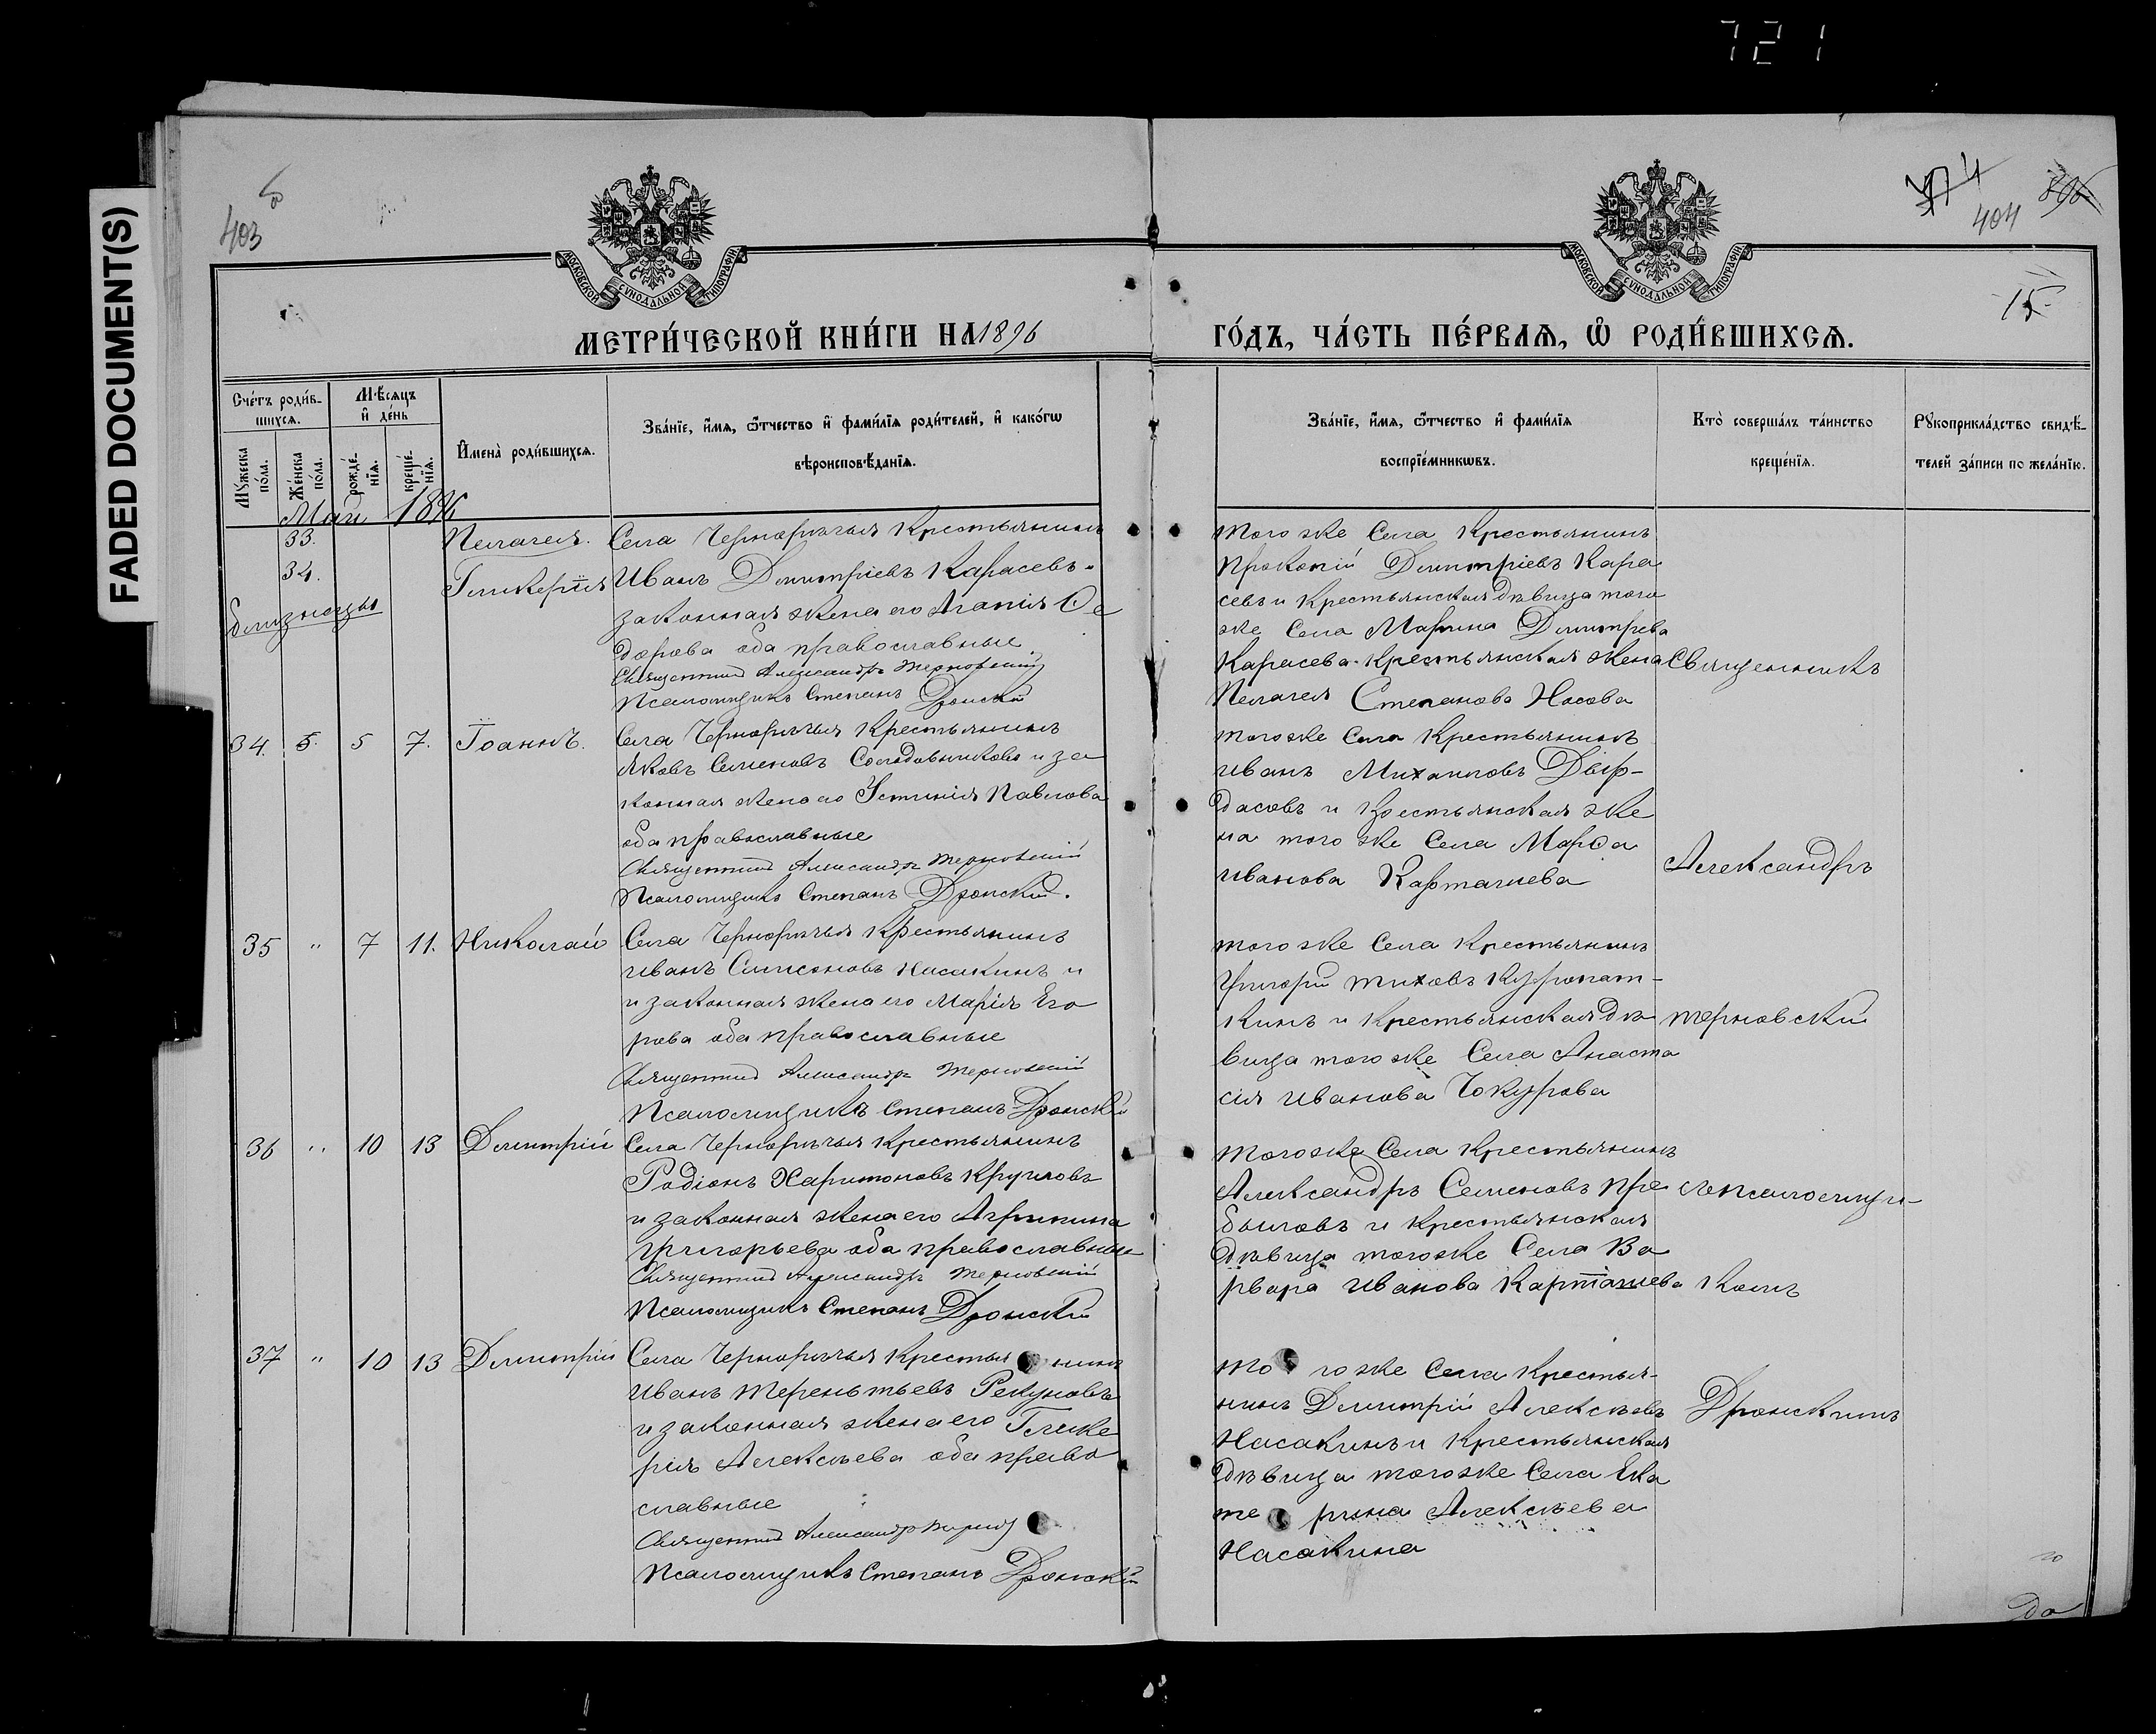 721
FADED DOCUMENT(S)
403
404
896
15
МОСКОВСКОЙ СѴНОДАЛЬНОЙ ТИПОГРАФІИ
МОСКОВСКОЙ СѴНОДАЛЬНОЙ ТИПОГРАФІИ
МЕТРИ́ЧЕСКОЙ КНИ́ГИ НА 1896
ГО́ДЪ, ЧА́СТЬ ПЕ́РВАѦ, Ѡ҆ РОДИ́ВШИХСѦ.
Сче́тъ роди́в-
шихсѧ.
Мꙋ́жеска по́ла.
Же́нска по́ла.
Мѣ́сѧцъ
и҆ де́нь
рожде́-
нїѧ.
креще́-
нїѧ.
И҆мена̀ роди́вшихсѧ.
Зва́нїе, и҆́мѧ, ѻ҆́тчество и҆ фами́лїѧ роди́телей, и҆ како́гѡ
вѣроисповѣ́данїѧ.
Зва́нїе, и҆́мѧ, ѻ҆́тчество и҆ фами́лїѧ
воспрїе́мникѡвъ.
Кто̀ соверша́лъ та́инство
креще́нїѧ.
Рꙋкоприкла́дство свидѣ́-
телей за́писи по жела́нїю.
Май 1896
33. Пелагея.
34. Гликерія
близнецы
Села Чернорѣчья Крестьянинъ
Иванъ Димитріевъ Карасевъ.
законная жена его Агапія Ѳе
дорова оба православные.
Священникъ Александръ Терновскій
Псаломщикъ Степанъ Дронскій
того же Села Крестьянинъ
Прокопій Димитріевъ Кара
севъ и Крестьянская дѣвица того
же Села Марина Димитрева
Карасева. Крестьянская жена
Пелагея Степанова Насова
Священникъ
34. 5 7. Іоаннъ.
Села Чернорѣчья Крестьянинъ
Яковъ Семеновъ Солодовниковъ и за
конная жена его Устинія Павлова
оба православные
Священникъ Александръ Терновскій
Псаломщикъ Степанъ Дронскій.
того же Села Крестьянинъ
Иванъ Михаиловъ Дыр-
дасовъ и Крестьянская же
на того же Села Марѳа
Иванова Карташева
Александръ
35 " 7 11. Николай
Села Чернорѣчья Крестьянинъ
Иванъ Симеоновъ Насакинъ и
и законная жена его Марія Его
рова оба православные
Священникъ Александръ Терновскій
Псаломщикъ Степанъ Дронскій
того же Села Крестьянинъ
Григорій Титовъ Куропат-
кинъ и Крестьянская дѣ
вица того же Села Анаста
сія Иванова Чокурова
Терновскій
36 " 10 13 Димитрій
Села Чернорѣчья Крестьянинъ
Родіонъ Харитоновъ Кругловъ
и законная жена его Агрипина
Григорьева оба православные
Священникъ Александръ Терновскій
Псаломщикъ Степанъ Дронскій
того же Села Крестьянинъ
Александръ Семеновъ Пре
быловъ и Крестьянская
дѣвица того же Села Ва
рвара Иванова Карташева
съ псаломщи-
комъ
37 " 10 13 Димитрій
Села Чернорѣчья Крестьянинъ
Иванъ Терентьевъ Рекуновъ
и законная жена его Глике
рія Алексѣева оба право
славные
Священникъ Александръ
Псаломщикъ Степанъ Дронскій
того же Села Крестья-
нинъ Димитрій Алексѣевъ
Насакинъ и Крестьянская
дѣвица того же Села Ека
терина Алексѣева
Насакина
Дронскимъ